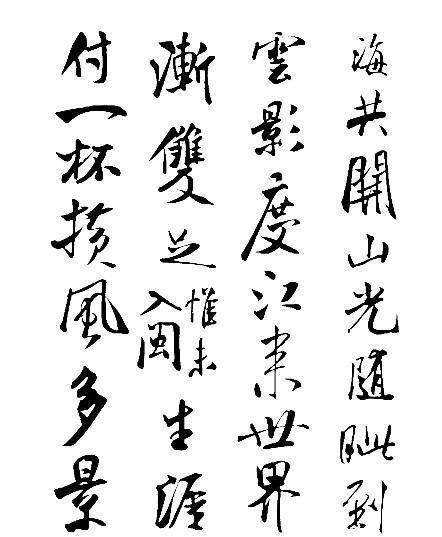 海共開山光随眦到
雲影度江来世界
漸雙足惟未入閩生涯
付一杯横風多景